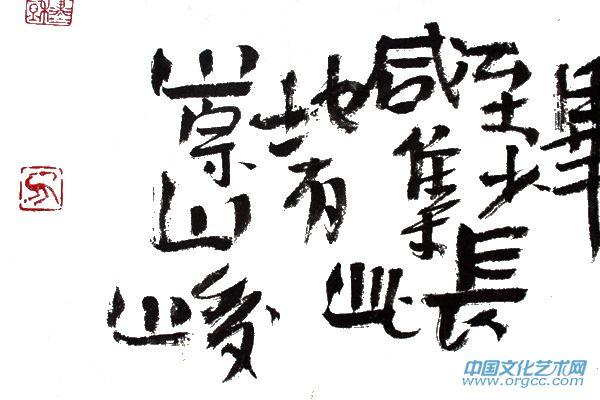 畢
至少長
咸集此
地有
崇山峻
中国文化艺术网
www.orgcc.com